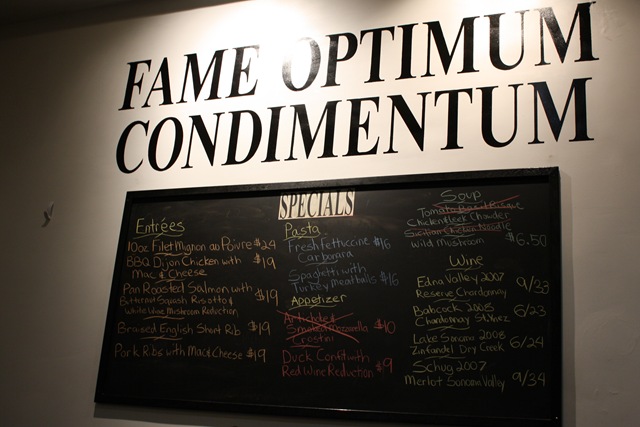 FAME OPTIMUM
CONDIMENTUM
SPECIALS
Entrées
10oz Filet Mignon au Poivre $24
BBQ Dijon Chicken with $19
Mac & Cheese
Pan Roasted Salmon with
Butternut Squash Risotto & $19
White Wine Mushroom Reduction
Braised English Short Rib $19
Pork Ribs with Mac & Cheese $19
Pasta
Fresh Fettuccine $16
Carbonara
Spaghetti with
Turkey Meatballs $16
Appetizer
Artichoke &
Smoked Mozzarella $10
Crostini
Duck Confit with
Red Wine Reduction $9
Soup
Tomato
Chicken Leek Chowder
Sicilian Chicken Noodle
Wild Mushroom $6.50
Wine
Edna Valley 2007
Reserve Chardonnay 9/33
Babcock 2008
Chardonnay 6/23
Lake Sonoma 2008
Zinfandel Dry Creek 6/24
Schug 2007
Merlot Sonoma Valley 9/34